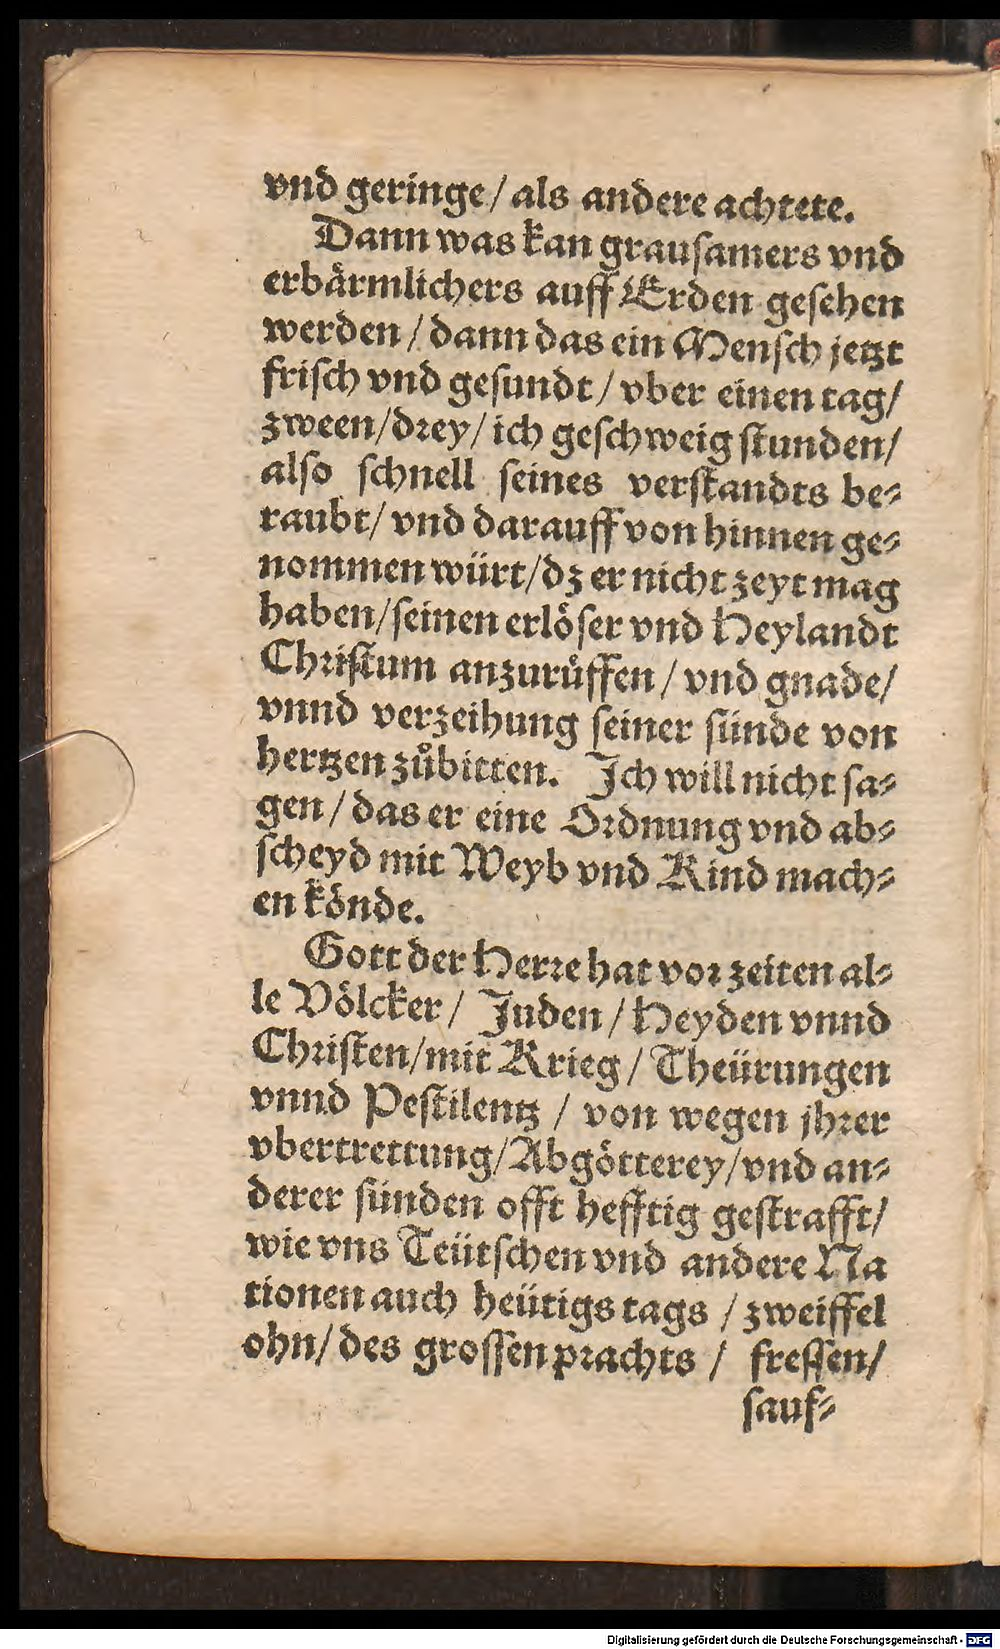 vnd geringe/ als andere achtete.
Dann was kan grauſamers vnd
erbaͤrmlichers auff Erden geſehen
werden / dann das ein Menſch jetzt
friſch vnd geſundt / vber einen tag/
zween/drey/ ich geſchweig ſtunden/
alſo ſchnell ſeines verſtandts be⸗
raubt/ vnd darauff von hinnen ge⸗
nommen würt/dz er nicht zeyt mag
haben/ſeinen erloͤſer vnd Heylandt
Chꝛiſtum anzuruͤffen / vnd gnade/
vnnd verzeihung ſeiner ſünde von
hertzen zuͦbitten. Ich will nicht ſa⸗
gen / das er eine Oꝛdnung vnd ab⸗
ſcheyd mit Weyb vnd Kind mach⸗
en koͤnde.
Gott der Herꝛe hat voꝛ zeiten al⸗
le Voͤlcker / Juden / Heyden vnnd
Chꝛiſten/mit Krieg / Theürungen
vnnd Peſtilentz / von wegen jhꝛer
vbertrettung/Abgoͤtterey/vnd an⸗
derer ſünden offt hefftig geſtrafft/
wie vns Teütſchen vnd andere Na
tionen auch heütigs tags / zweiffel
ohn/ des groſſen pꝛachts / freſſen/
ſauf⸗
Digitalisierung gefördert durch die Deutsche Forschungsgemeinschaft - DFG